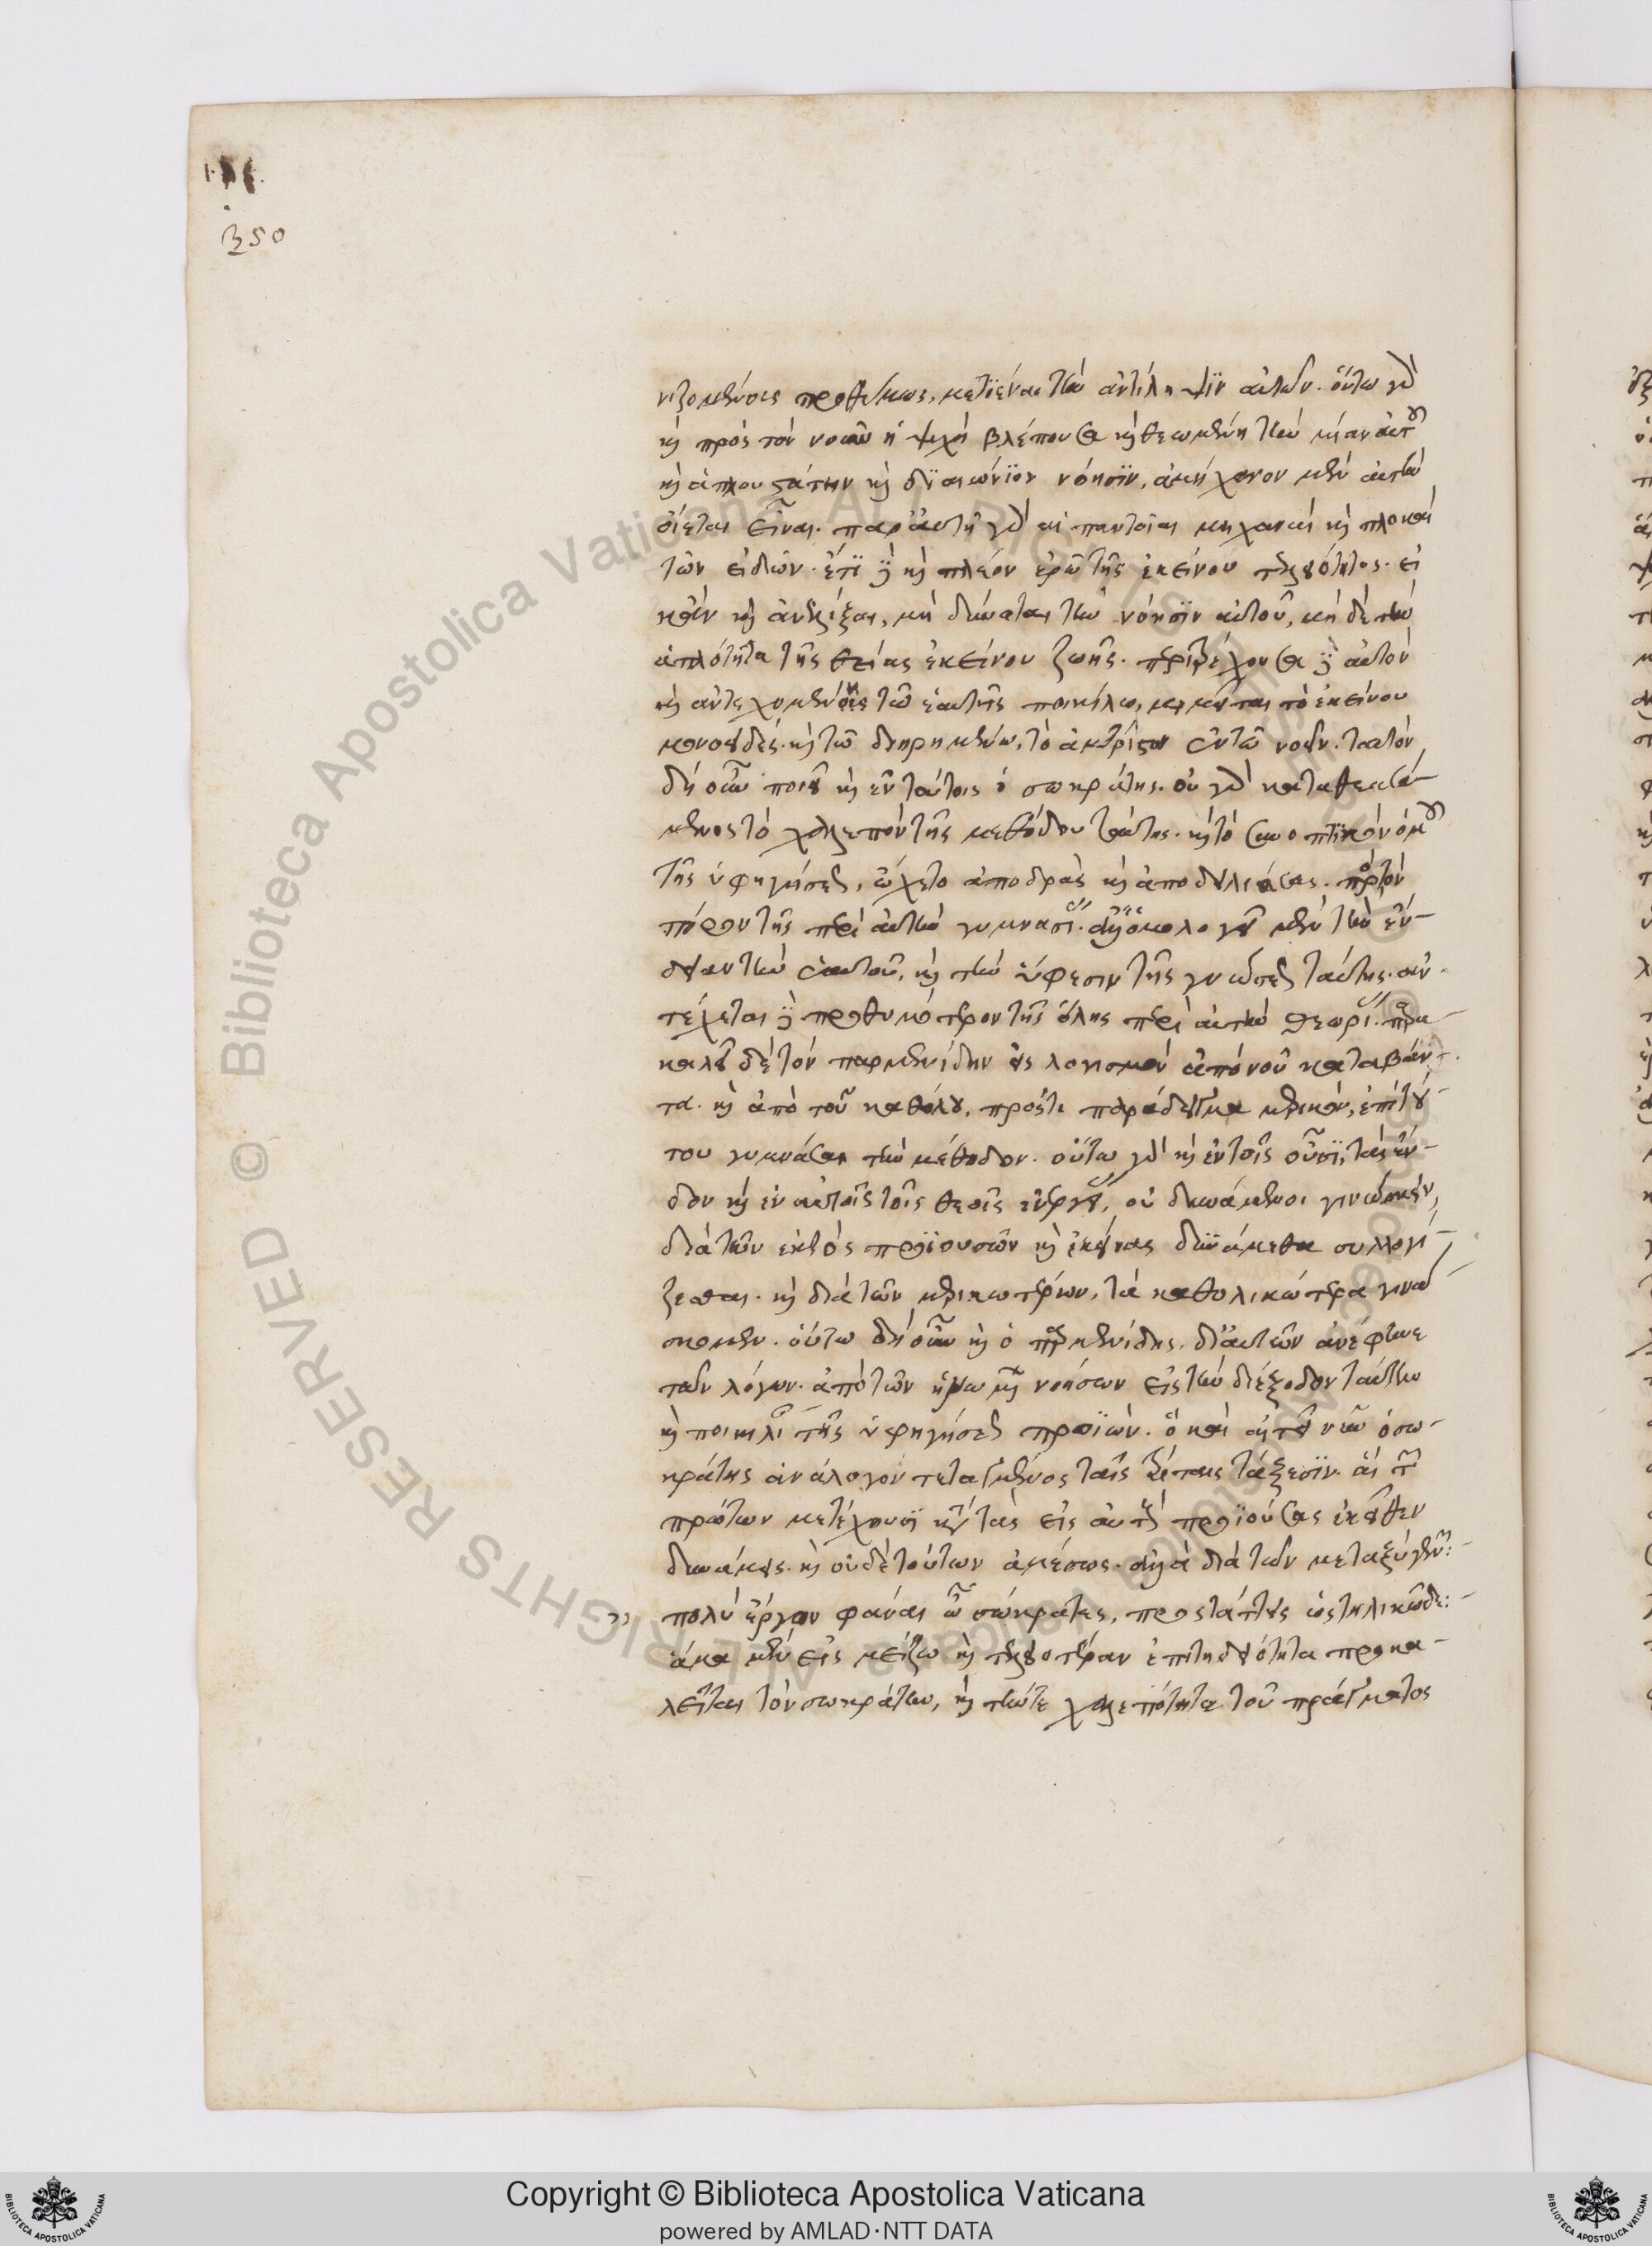 350
νιζομένοις προθύμως, μετϊέναι τὴν ἀντίληψϊν αὐτῶν. οὕτω γὰρ
καὶ πρὸς τὸν νοῦν ἡ ψυχὴ βλέπουσα καὶ θεωμένη τὴν μίαν αὐτοῦ
καὶ ἁπλουστάτην καὶ δϊαιώνϊον νόησϊν, ἀμήχανον μὲν αὐτὴν
οἴεται εἶναι. παρ' αὐτῇ γὰρ αἱ παντοῖαι μηχαναὶ καὶ πλοκαὶ
τῶν εἰδῶν. ἔτϊ δὲ καὶ πλέον ἐρᾷ τῆς ἐκείνου τελειότητος. εἰ
καὶ ἀνελίξαι, μὴ δύναται τὴν νόησϊν αὐτοῦ, μὴ δὲ τὴν
ἁπλότητα τῆς θείας ἐκείνου ζωῆς. περϊτρέχουσα δὲ αὐτὸν
καὶ ἀντεχομένη τῷ ἑαυτῆς ποικίλῳ, μιμεῖται τὸ ἐκείνου
μονοειδές. καὶ τῷ διῃρημένῳ, τὸ ἀμέριστον ἐν τῷ νοεῖν. ταὐτὸν
δὴ οὖν ποιεῖ καὶ ἐν τούτοις ὁ σωκράτης. οὐ γὰρ καταθεασά-
μενος τὸ χαλεπὸν τῆς μεθόδου ταύτης. καὶ τὸ συνοπτϊκὸν ὁμοῦ
τῆς ὑφηγήσεως, ᾤχετο ἀποδρὰς καὶ ἀποδειλιάσας. πρὸς τὸν
πόρον τῆς περὶ αὐτὴν γυμνασίας. ἀλλ' ὁμολογεῖ μὲν τὴν ἔν-
δειαν τὴν ἑαυτοῦ, καὶ τὴν ὕφεσιν τῆς γνώσεως ταύτης. ἀν-
τέχεται δὲ προθυμότερον τῆς ὅλης περὶ αὐτὴν θεωρίας. παρα-
καλεῖ δὲ τὸν παρμενίδην εἰς λογισμὸν ἀπὸ νοῦ καταβάν-
τα. καὶ ἀπὸ τοῦ καθόλου, πρός τι παράδειγμα μερικόν, ἐπὶ τού-
του γυμνάσαι τὴν μέθοδον. οὕτω γὰρ καὶ ἐν τοῖς οὖσϊ, τὰς ἔν-
δον καὶ ἐν αὐτοῖς τοῖς θεοῖς ἐνεργείας, οὐ δυνάμενοι γινώσκειν,
διὰ τῶν ἐκτὸς προϊουσῶν καὶ ἐκείνας δυνάμεθα συλλογί-
ζεσθαι. καὶ διὰ τῶν μερικωτέρων, τὰ καθολικώτερα γινώ
σκομεν. οὕτω δὴ οὖν καὶ ὁ παρμενίδης, δι' αὐτῶν ἀνέφηνε
τῶν λόγων. ἀπὸ τῶν ἡνωμένων νοήσεων εἰς τὴν διέξοδον ταύτην
καὶ ποικιλίαν τῆς ὑφηγήσεως προϊών. ὃ καὶ αἰτεῖ νῦν ὁ σω-
κράτης ἀνάλογον τεταγμένος ταῖς τρίταις τάξεσϊν. αἳ τῶν
πρώτων μετέχουσϊ κατὰ τὰς εἰς αὐτὰς προϊούσας ἐκεῖθεν
δυνάμεις. καὶ οὐδὲ τούτων ἀμέσως. ἀλλὰ διὰ τῶν μεταξὺ γενῶν:-
πολὺ ἔργον φάναι ὦ σώκρατες, προστάττεις ὡς τηλικῷδε:-
ἅμα μὲν εἰς μείζω καὶ τελειοτέραν ἐπιτηδειότητα προκα-
λεῖται τὸν σωκράτην, καὶ τήν τε χαλεπότητα τοῦ πράγματος
Copyright © Biblioteca Apostolica Vaticana
powered by AMLAD·NTT DATA